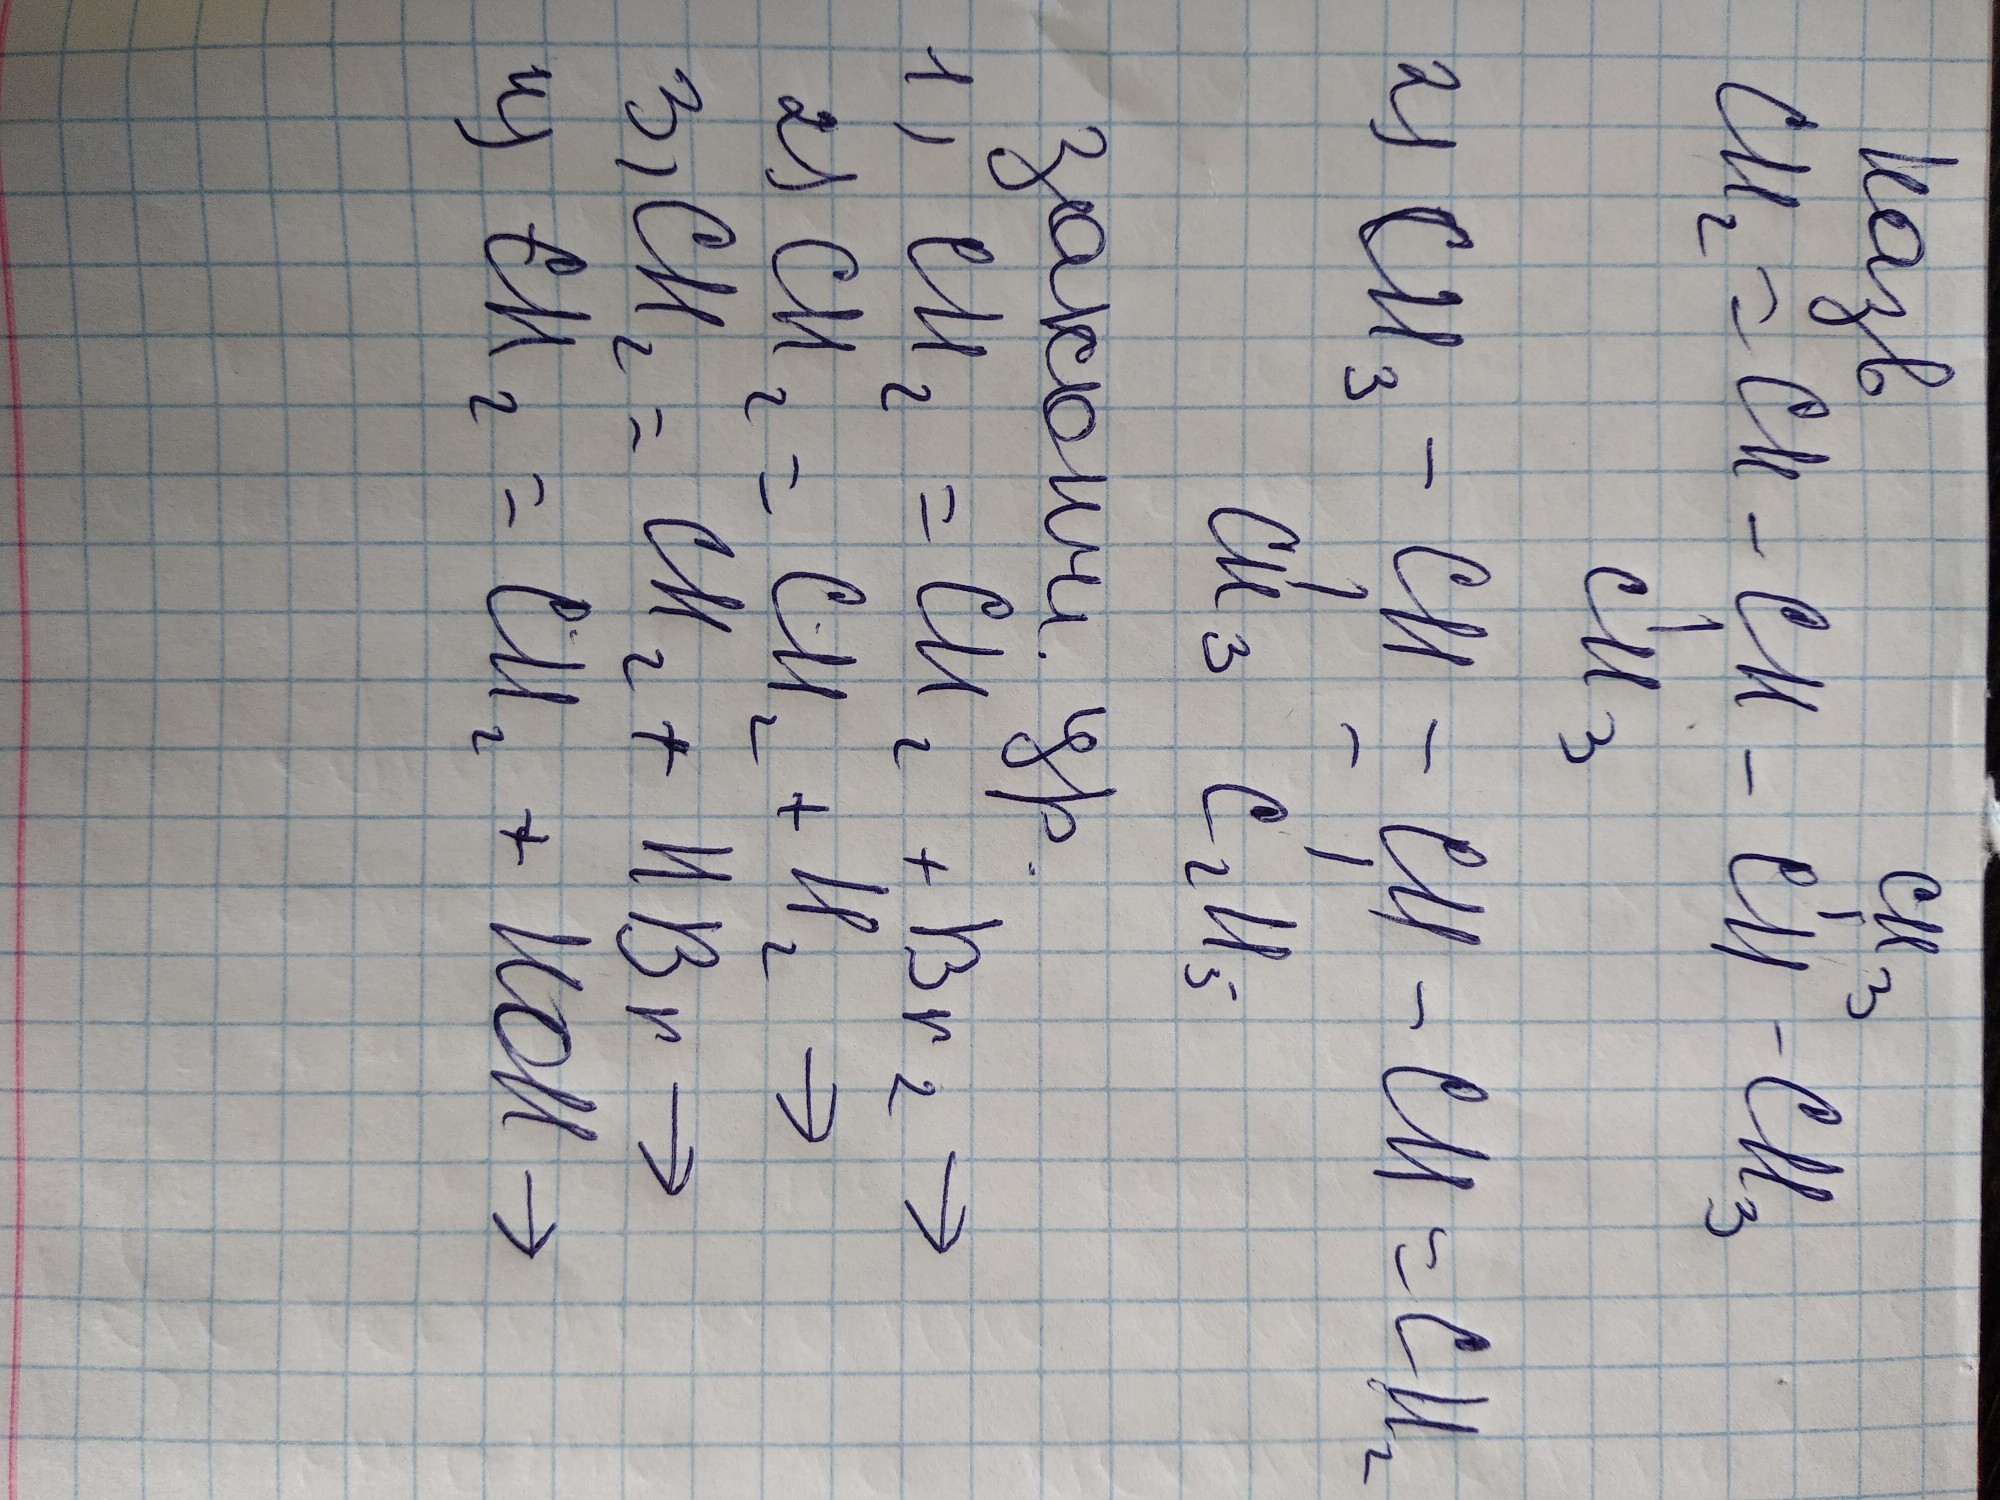 Назв
CH3
CH2 = CH - CH - CH - CH3
CH3
2) CH3 - CH - CH - CH = CH2
CH3 C2H5
Закончи. ур.
1) CH2 = CH2 + Br2 →
2) CH2 = CH2 + H2 →
3) CH2 = CH2 + HBr →
4) CH2 = CH2 + HOH →